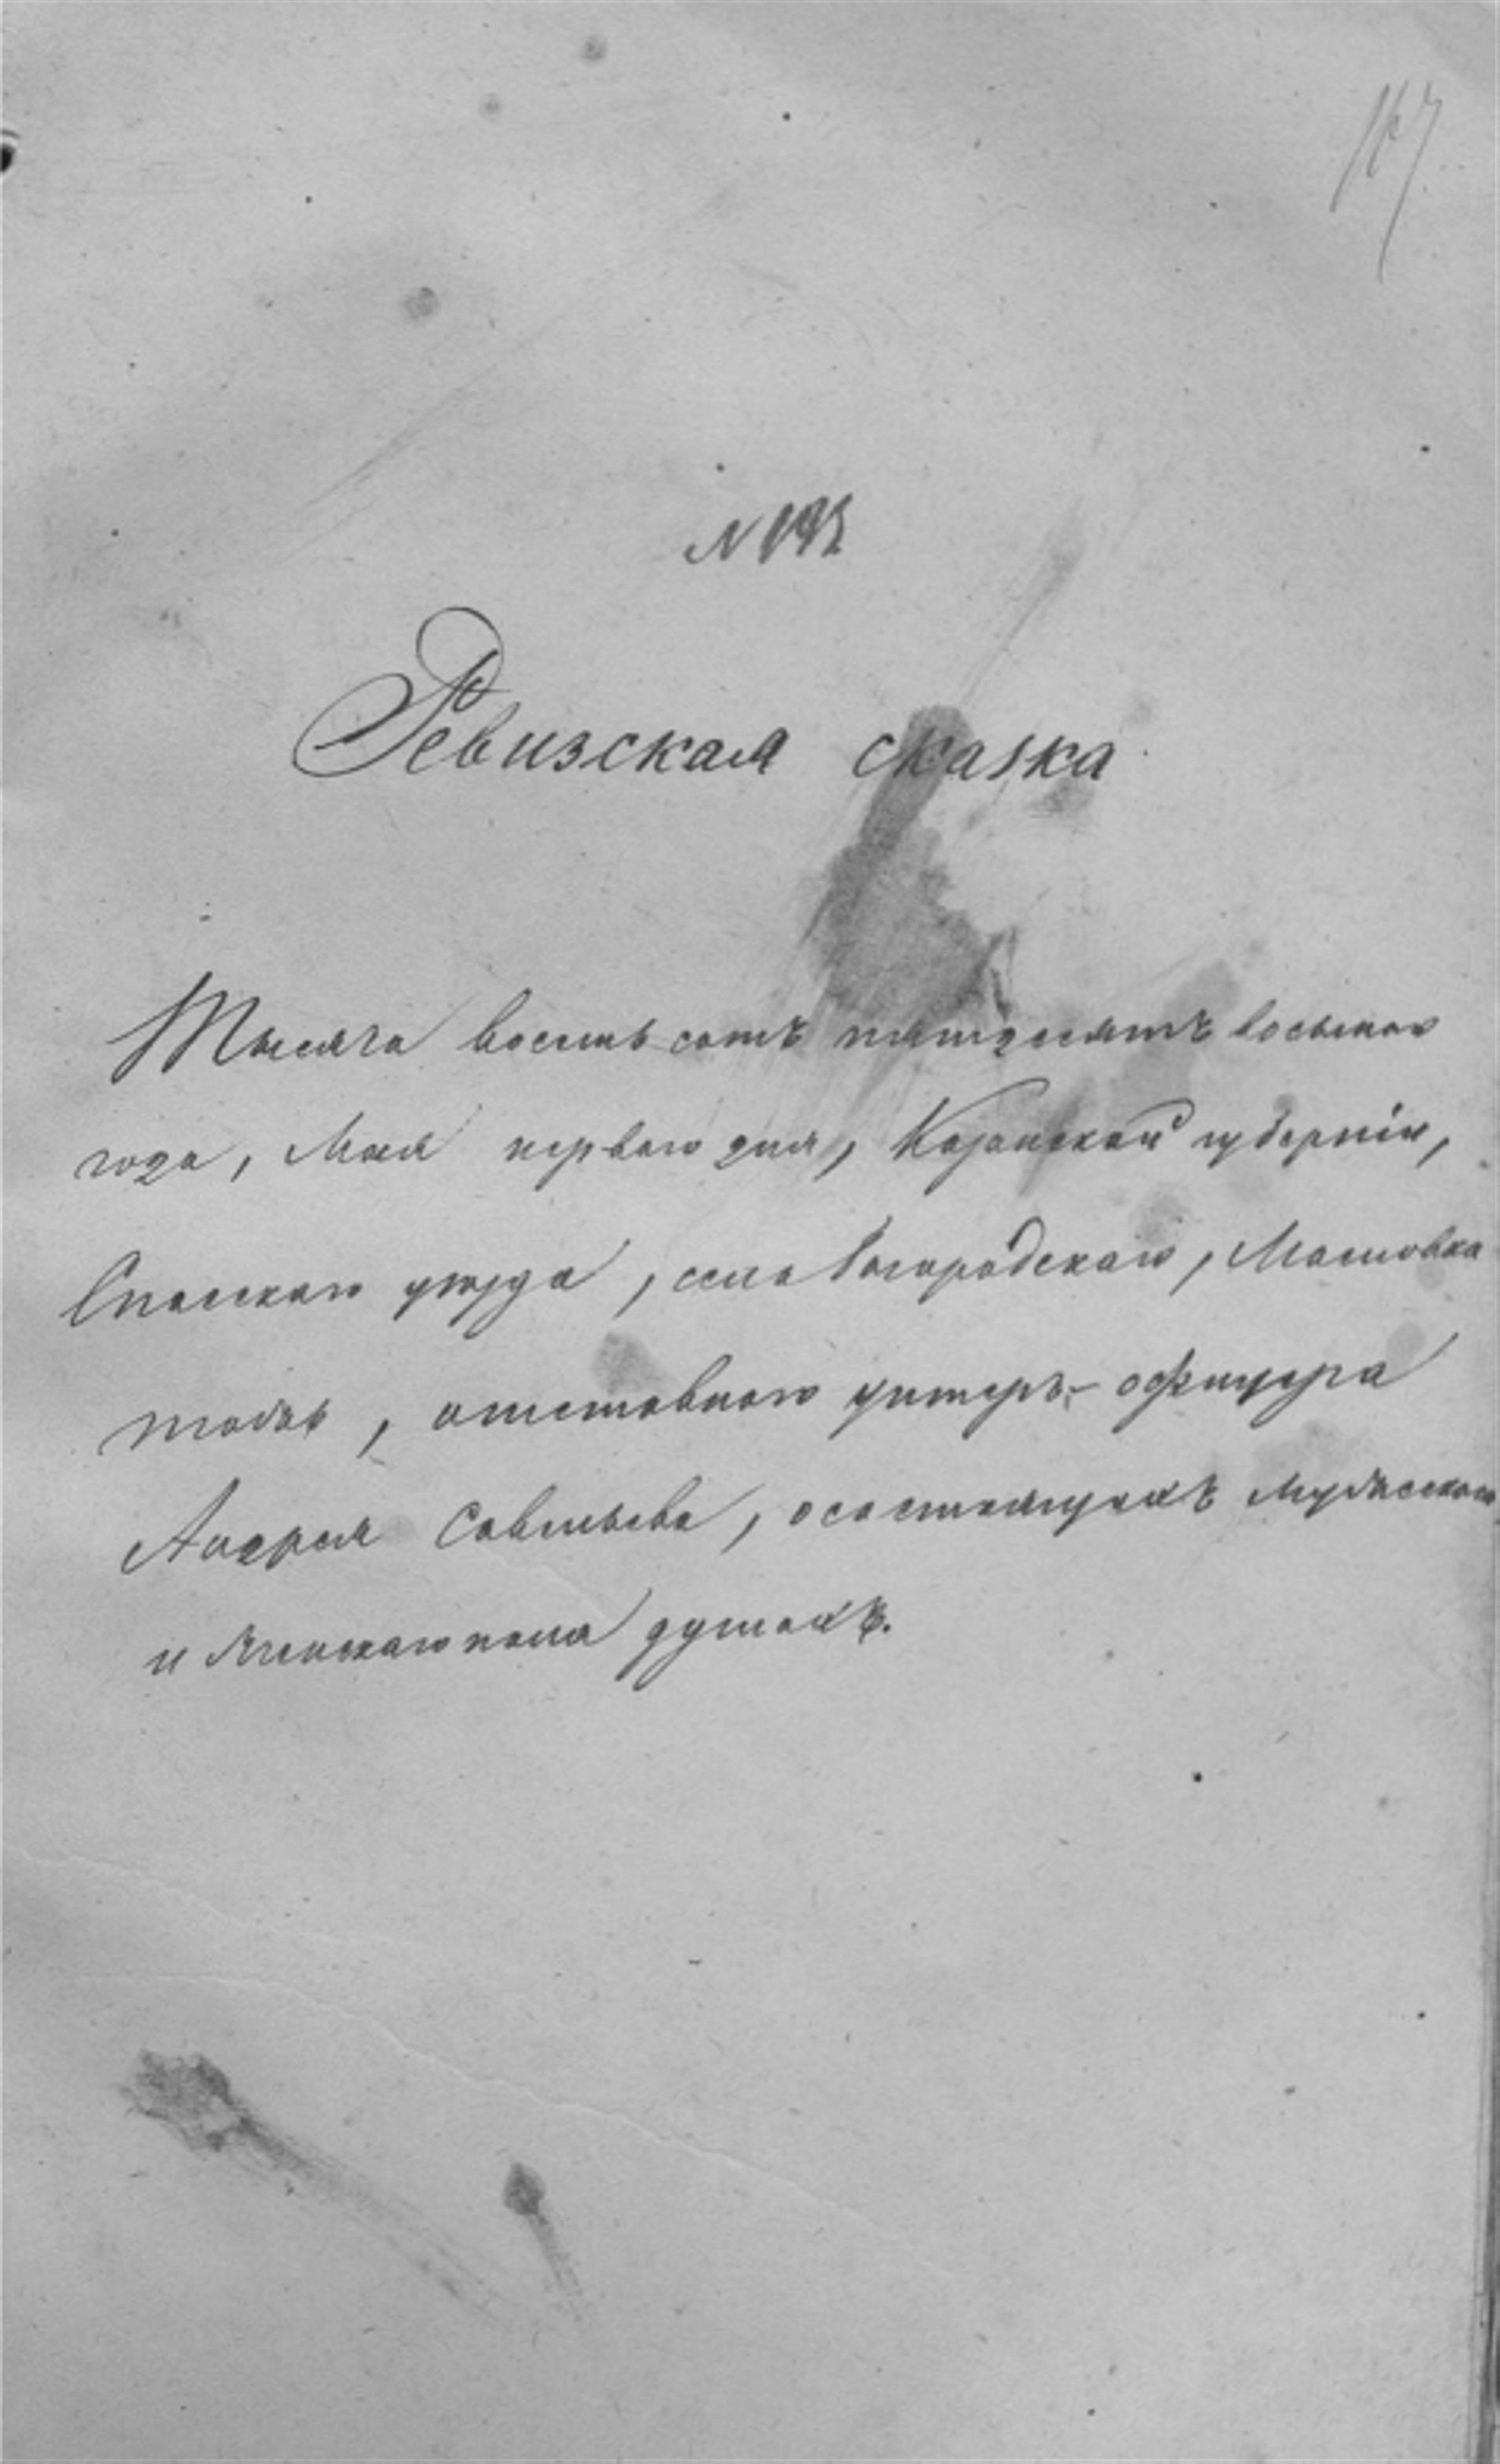 Ревизская сказка
Тысяча восемь сотъ пятдесятъ восьмаго
года, Мая перваго дня, Казанской губерніи,
Спасскаго уѣзда, села Богородскаго,
тожъ, отставнаго унтеръ-офицера
Андрея Савельева, о состоящихъ мужескаго
и женскаго пола душахъ.